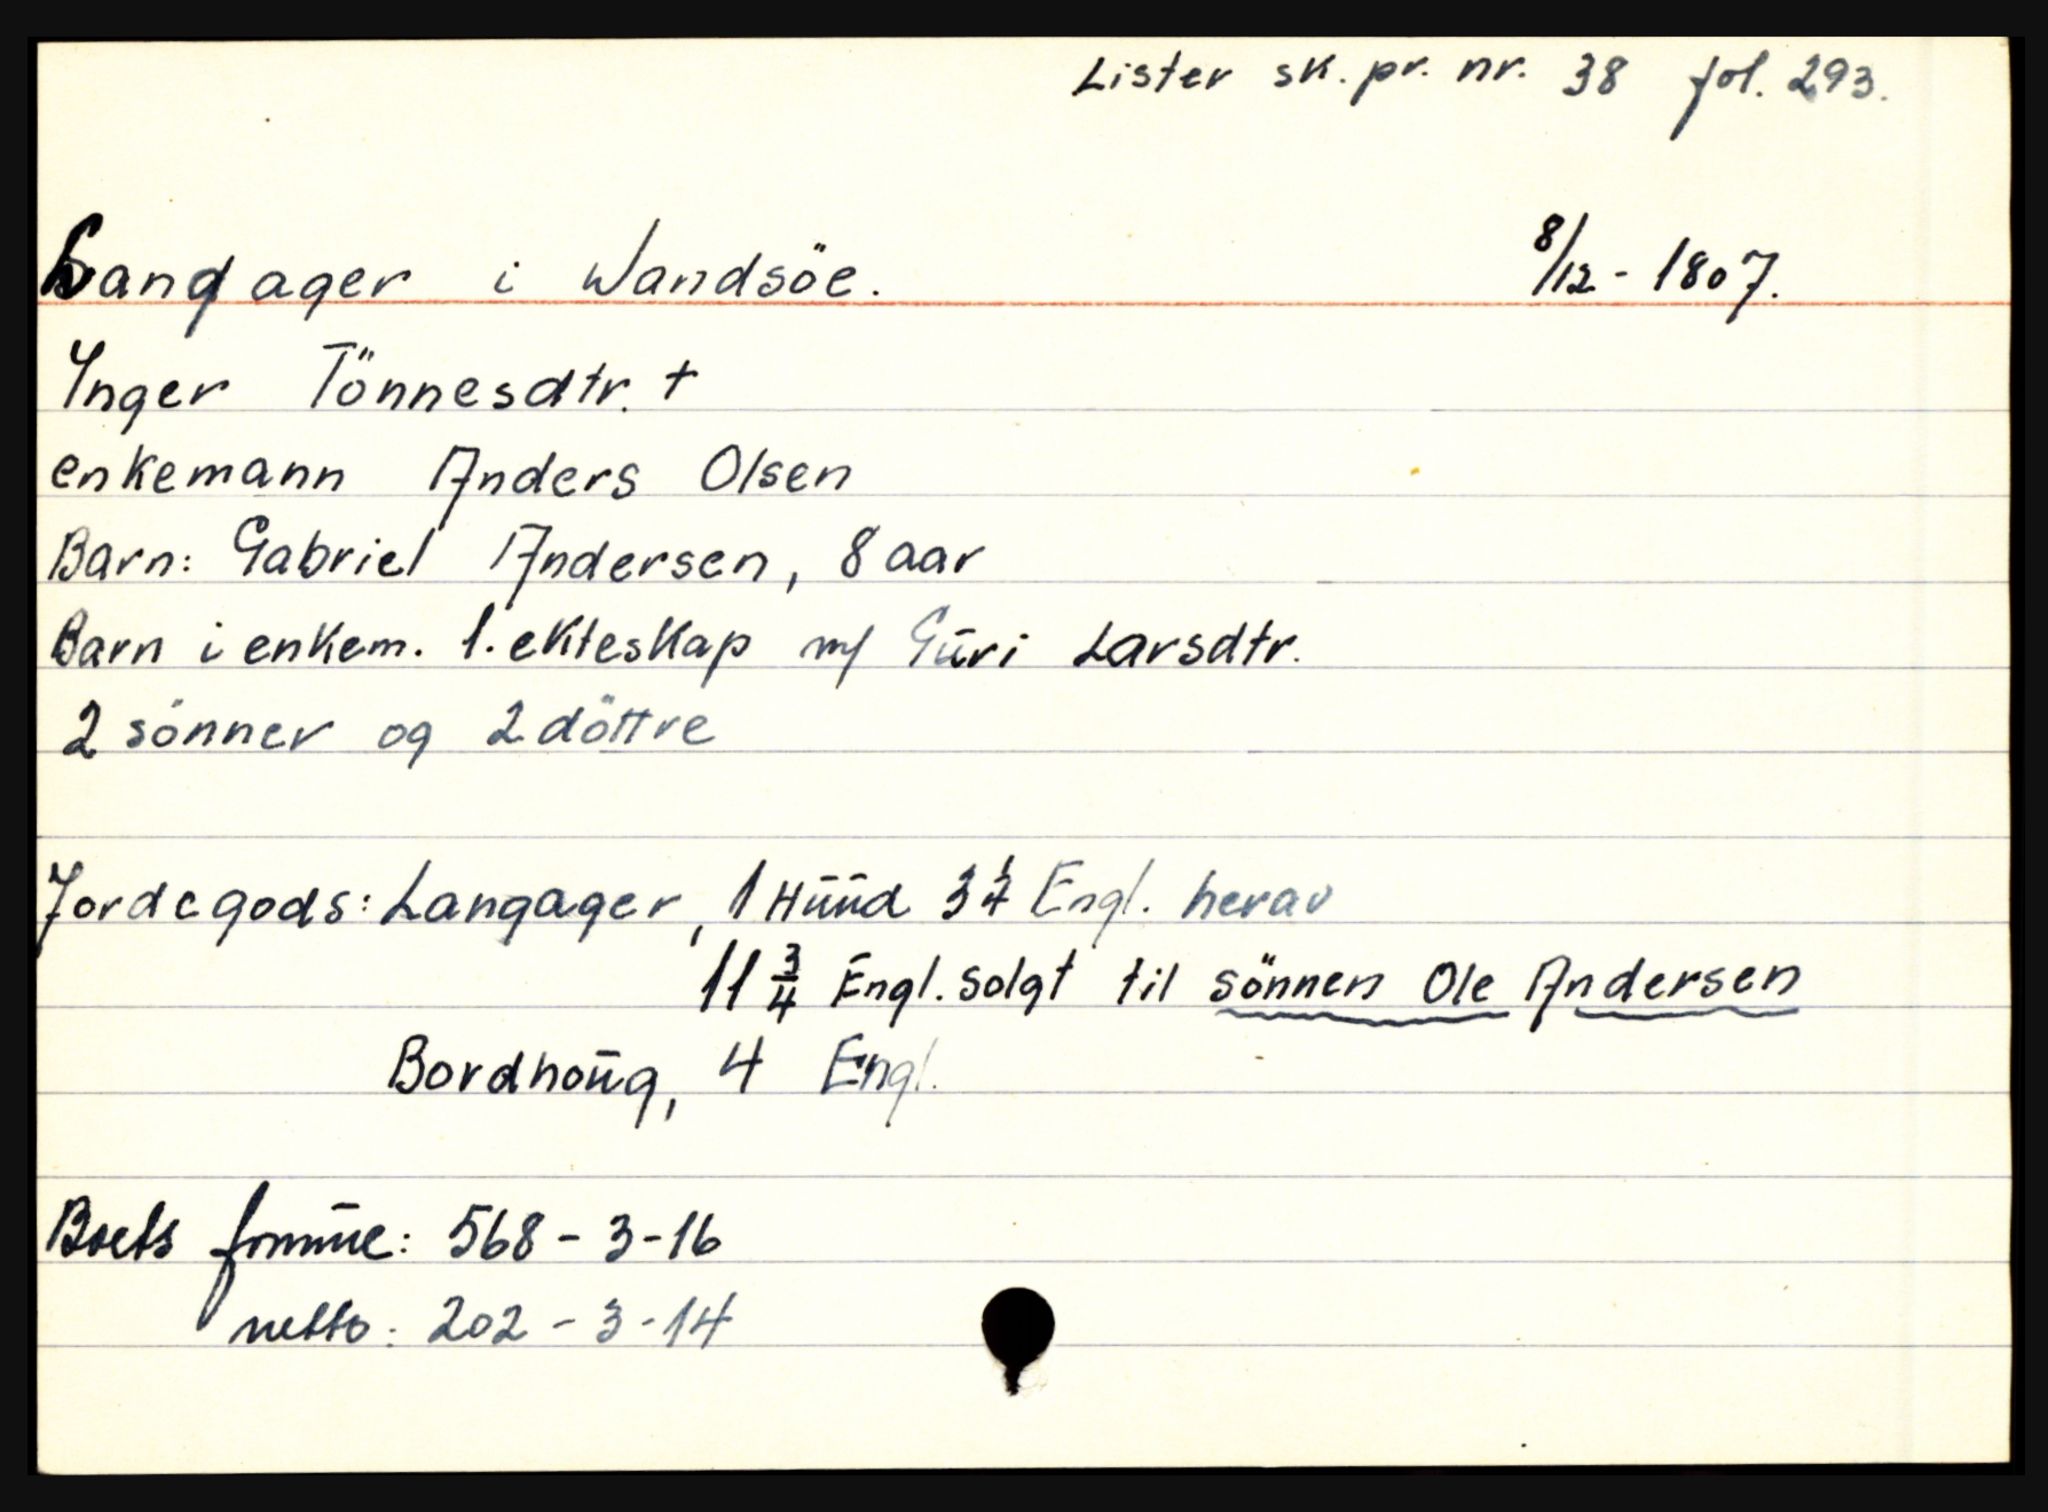 Lister sk. pr. nr. 38 fol. 293.
Langager i Wandsöe. 8/12 - 1807.
Inger Tönnesdtr. +
enkemann Anders Olsen
Barn: Gabriel Andersen, 8 aar
Barn i enkem. 1. ekteskap m/ Gūri Larsdtr.
2 sönner og 2 döttre
Jordegods: Langager, 1 Hūūd 3 Engl. herav
11 3/4 Engl. solgt til sönnen Ole Andersen
Bordhoūg, 4 Engl.
Boets
netto: 202 - 3 - 14
568 - 3 - 16